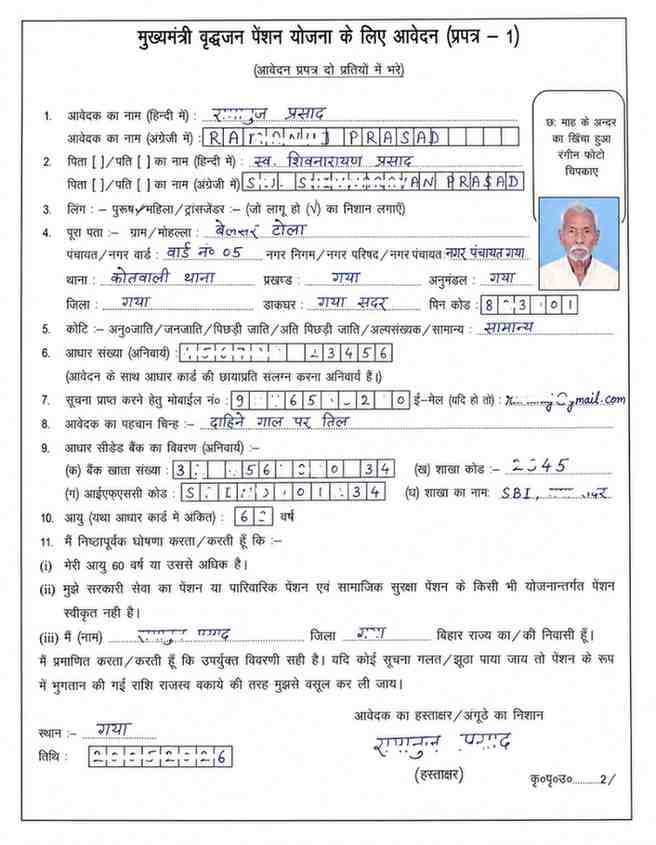 मुख्यमंत्री वृद्धजन पेंशन योजना के लिए आवेदन (प्रपत्र – 1)
(आवेदन प्रपत्र दो प्रतियों में भरे)
छः माह के अन्दर
का खिंचा हुआ
रंगीन फोटो
चिपकाए
1. आवेदक का नाम (हिन्दी में) : प्रसाद
आवेदक का नाम (अंग्रेजी में) : PRASAD
2. पिता [ ]/पति [ ] का नाम (हिन्दी में) : स्व. शिवनारायण प्रसाद
पिता [ ]/पति [ ] का नाम (अंग्रेजी में) PRASAD
3. लिंग : – पुरूष/महिला/ट्रांसजेंडर :– (जो लागू हो (√) का निशान लगाएँ)
4. पूरा पता :– ग्राम/मोहल्ला : बेलसर टोला
पंचायत/नगर वार्ड : वार्ड नं० 05 नगर निगम/नगर परिषद/नगर पंचायत: नगर पंचायत गया
थाना : कोतवाली थाना प्रखण्ड : गया अनुमंडल : गया
जिला : गया डाकघर : गया सदर पिन कोड :
5. कोटि :– अनु०जाति/जनजाति/पिछड़ी जाति/अति पिछड़ी जाति/अल्पसंख्यक/सामान्य : सामान्य
6. आधार संख्या (अनिवार्य) : 3456
(आवेदन के साथ आधार कार्ड की छायाप्रति संलग्न करना अनिवार्य हैं।)
7. सूचना प्राप्त करने हेतु मोबाईल नं० : ई–मेल (यदि हो तो) : @gmail.com
8. आवेदक का पहचान चिन्ह :– दाहिने गाल पर तिल
9. आधार सीडेड बैंक का विवरण (अनिवार्य) :–
(क) बैंक खाता संख्या : (ख) शाखा कोड :– 2345
(ग) आईएफएससी कोड : (घ) शाखा का नाम: SBI,
10. आयु (यथा आधार कार्ड में अंकित) : वर्ष
11. मैं निष्ठापूर्वक घोषणा करता/करती हूँ कि :–
(i) मेरी आयु 60 वर्ष या उससे अधिक है।
(ii) मुझे सरकारी सेवा का पेंशन या पारिवारिक पेंशन एवं सामाजिक सुरक्षा पेंशन के किसी भी योजनान्तर्गत पेंशन
स्वीकृत नही है।
(iii) मैं (नाम) जिला गया बिहार राज्य का/की निवासी हूँ।
मैं प्रमाणित करता/करती हूँ कि उपर्युक्त विवरणी सही है। यदि कोई सूचना गलत/झूठा पाया जाय तो पेंशन के रूप
में भुगतान की गई राशि राजस्व बकाये की तरह मुझसे वसूल कर ली जाय।
आवेदक का हस्ताक्षर/अंगूठे का निशान
स्थान :– गया
तिथि :
(हस्ताक्षर)
कृ०पृ०उ०..........2/